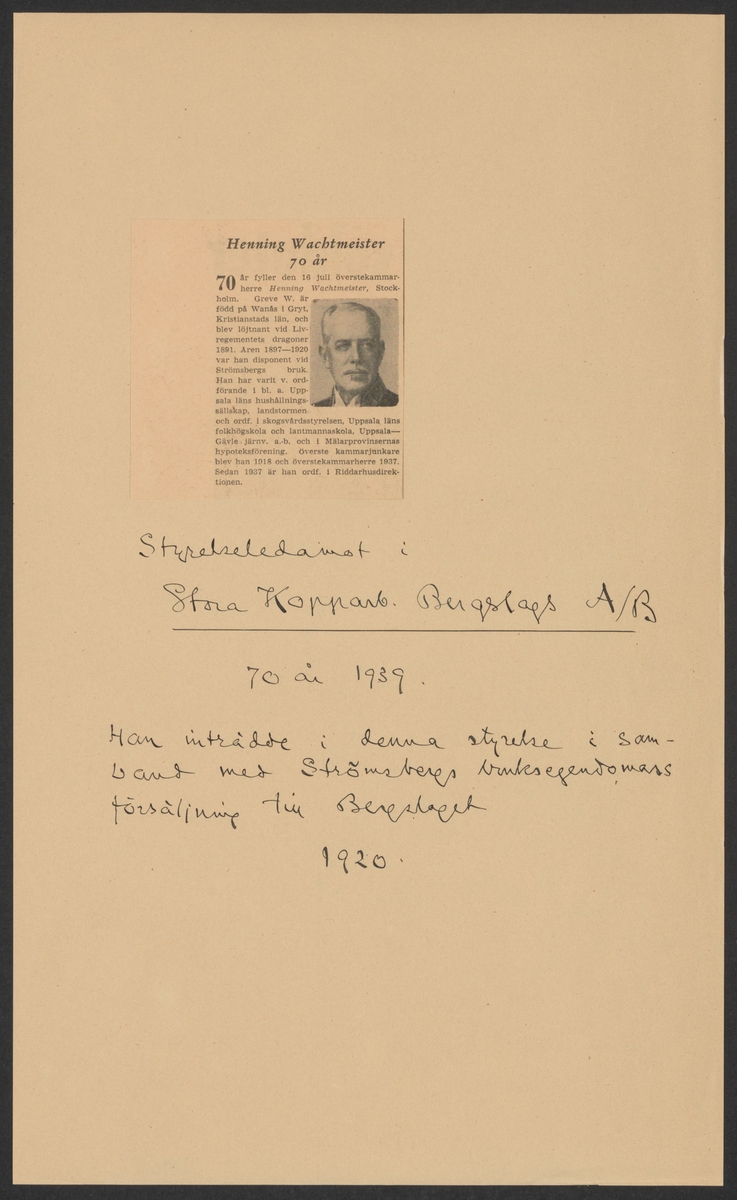 Henning Wachtmeister
70 år
70 år fyller den 16 juli överstekammar-
herre Henning Wachtmeister, Stock-
holm. Greve W. är
född på Wanås i Gryt,
Kristianstads län, och
blev löjtnant vid Liv-
regementets dragoner
1891. Åren 1897—1920
var han disponent vid
Strömsbergs bruk.
Han har varit v. ord-
förande i bl. a. Upp-
sala läns hushållnings-
sällskap, landstormen
och ordf. i skogsvårdsstyrelsen, Uppsala läns
folkhögskola och lantmannaskola, Uppsala—
Gävle järnv. a.-b. och i Mälarprovinsernas
hypoteksförening. Överste kammarjunkare
blev han 1918 och överstekammarherre 1937.
Sedan 1937 är han ordf. i Riddarhusdirek-
tionen.
Styrelseledamot i
Stora Kopparb. Bergslags A/B
70 år 1939.
Han inträdde i denna styrelse i sam-
band med Strömsbergs bruksegendomars
försäljning till Bergslaget
1920.